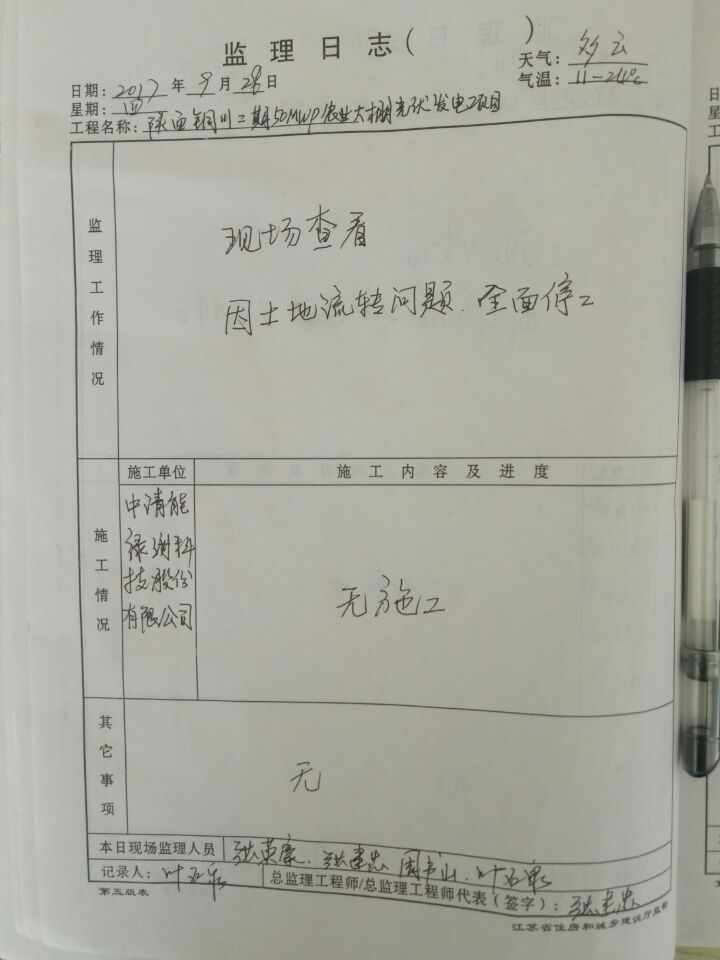 监理日志( )
天气: 多云
日期: 2017年9月28日
气温: 11-24℃
星期: 四
工程名称: 陕西铜川二期50MWP农业大棚光伏发电项目
监理工作情况
现场查看
因土地流转问题.全面停工
施工单位 施工内容及进度
施工情况
中清能
绿洲科
技股份
有限公司
无施工
其它事项
无
本日现场监理人员 张英豪. 张建忠 周书山.
记录人: 总监理工程师/总监理工程师代表(签字): 张建忠
第五版表 江苏省住房和城乡建设厅监制